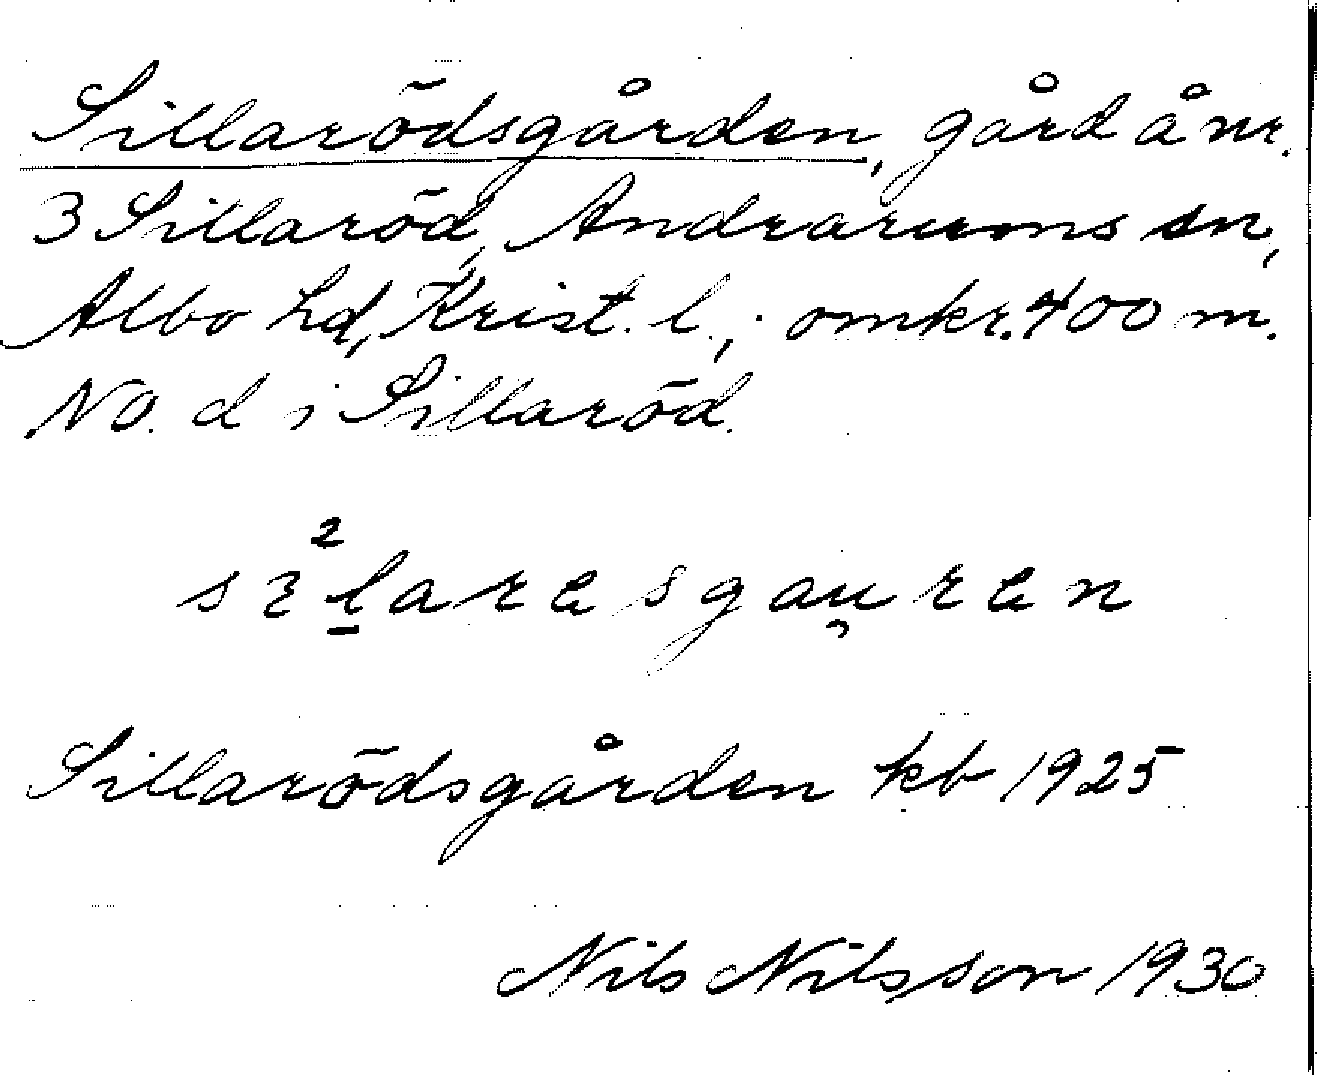 Sillarödsgården, gård å nr.
3 Sillaröd, Andrarums sn,
Albo hd, Krist. l., omkr. 400 m.
NO. d i Sillaröd.
Sillarödsgården kb 1925
Nils Nilsson 1930